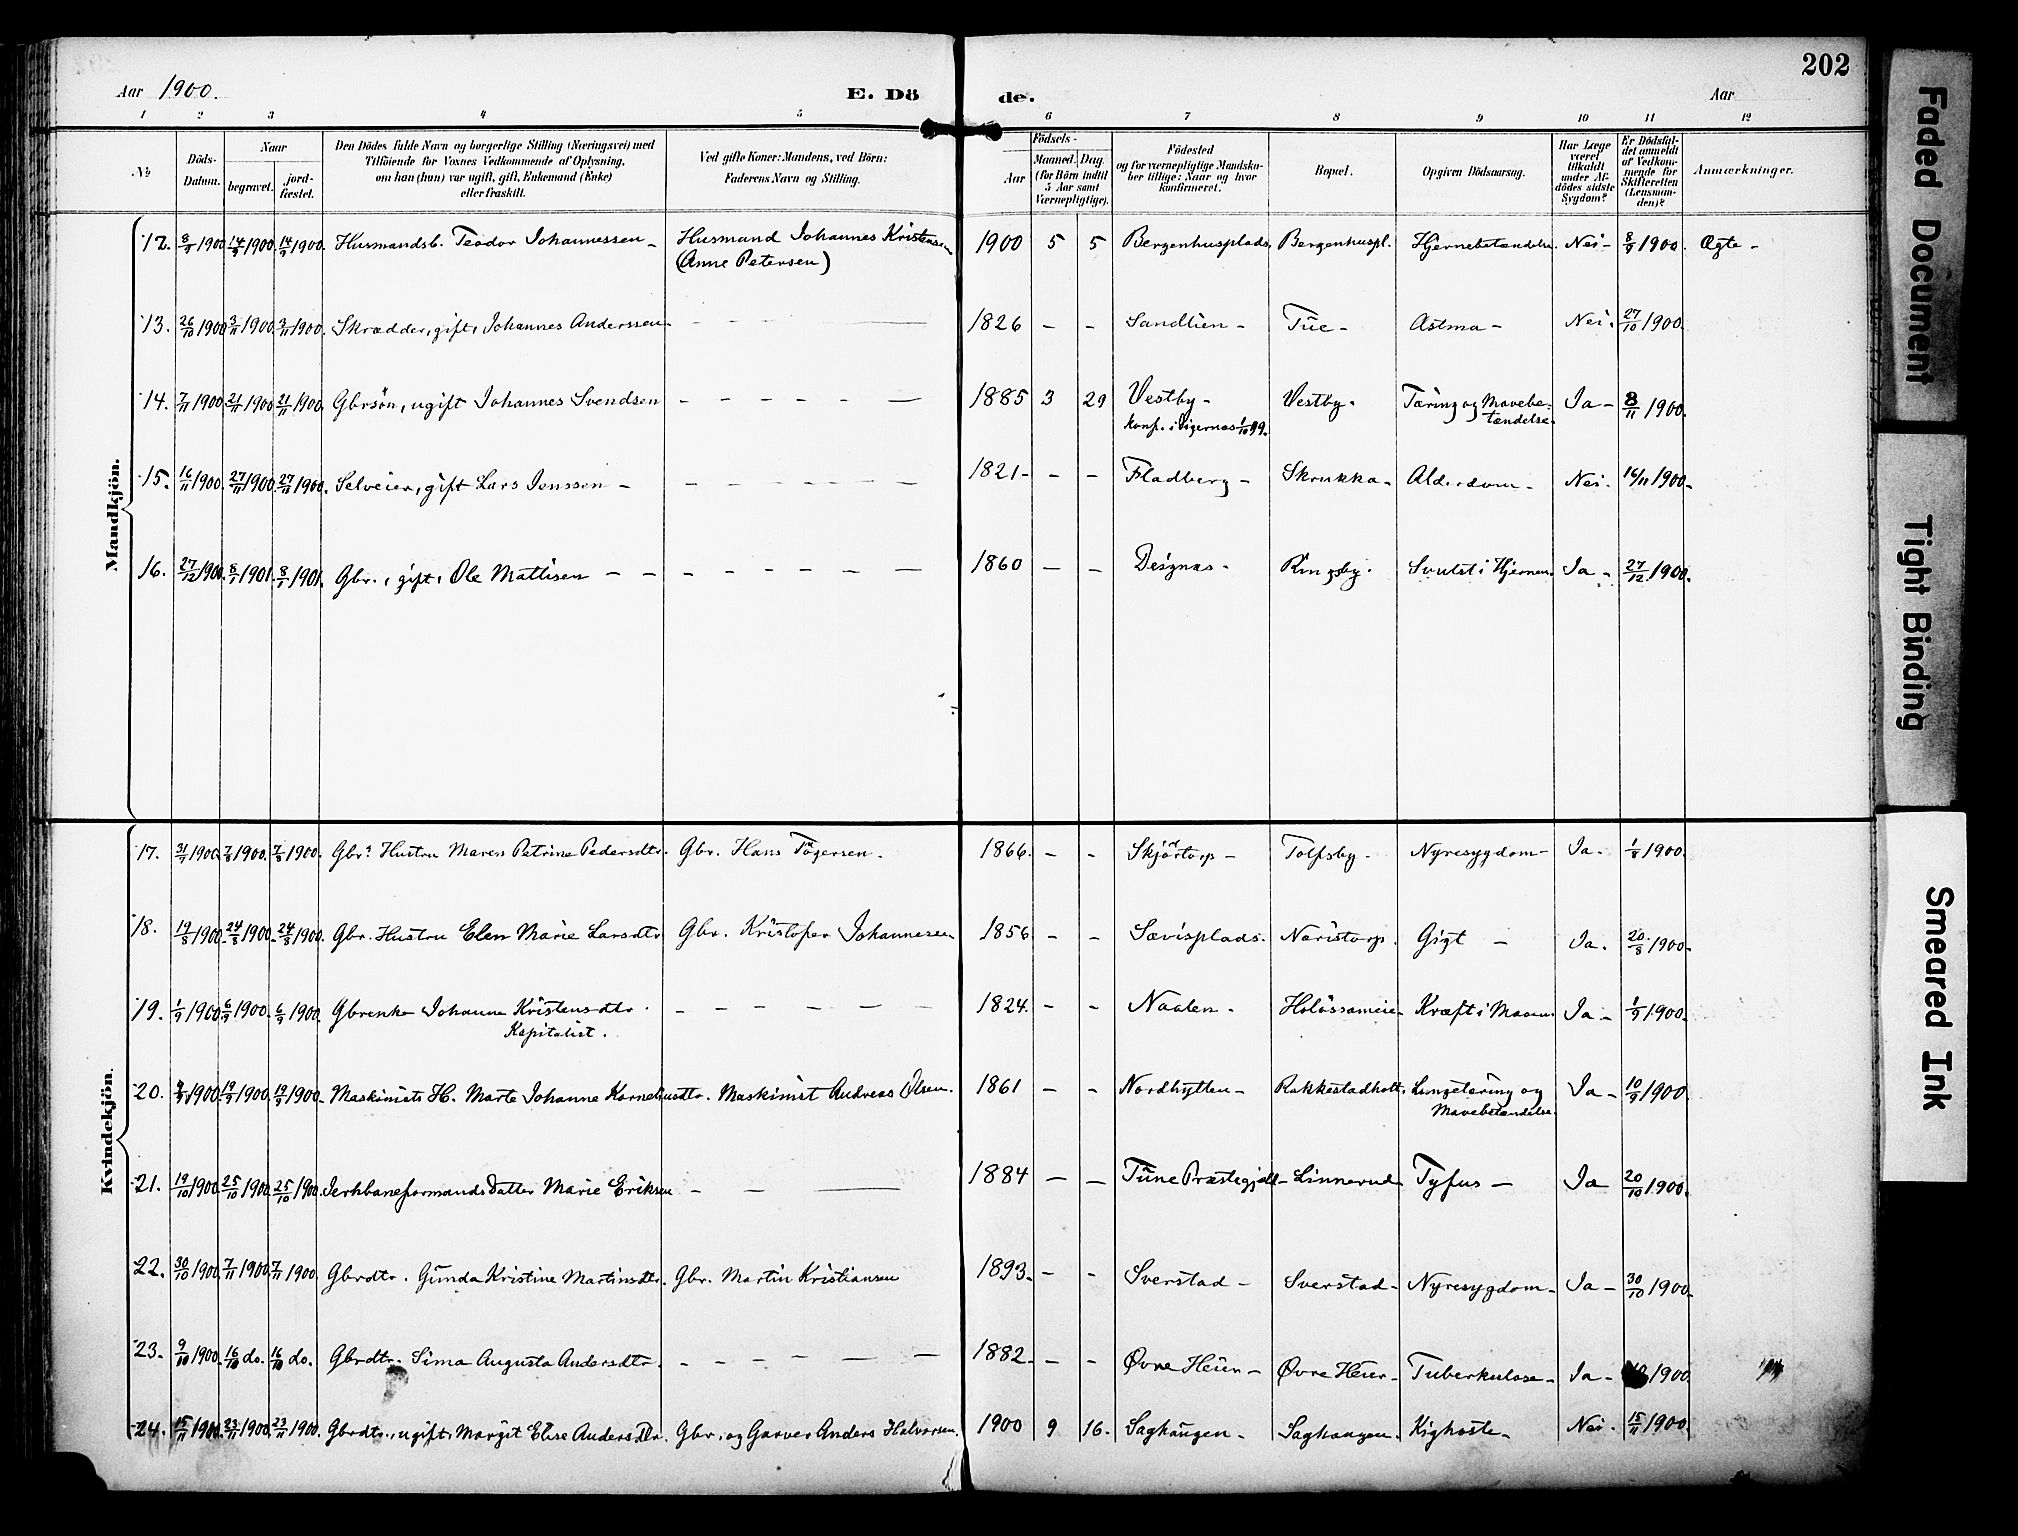 202
Aar 1900.
E. Dö de.
Aar
1 2 3 4 5 6 7 8 9 10 11 12
№
Döds-
Datum.
Naar
begravet.
jord-
fæstet.
Den Dödes fulde Navn og borgerlige Stilling (Næringsvei) med
Tilföiende for Voxnes Vedkommende af Oplysning,
om han (hun) var ugift, gift, Enkemand (Enke)
eller fraskilt.
Ved gifte Koner: Mandens, ved Börn:
Faderens Navn og Stilling.
Födsels-
Aar
Maaned. Dag.
(for Börn indtil
5 Aar samt
Værnepligtige).
Födested
og for værnepligtige Mandska-
ber tillige: Naar og hvor
konfirmeret.
Bopæl.
Opgiven Dödsaarsag.
Har Læge
været
tilkaldt
under Af-
dödes sidste
Sygdom?
Er Dödsfal-
det anmeldt
af Vedkom-
mende for
Skifteretten
(Lensman-
den)?
Anmærkninger.
Mandkjön.
12. 8/9 1900 14/9 1900. 14/9 1900. Husmandsb. Teodor Johannessen - Husmand Johannes Kristensen 1900 5 5 Bergenhusplads. Bergenhuspl. Hjernebetændelse Nei - 8/9 1900. Ægte -
(Anne Petersen)
13. 26/10 1900 3/11 1900. 3/11 1900. Skrædder, gift, Johannes Anderssen - 1826 - - Sandlien - Tue - Astma - Nei. 27/10 1900.
14. 7/11 1900 21/11 1900 21/11 1900. Gbrsön, ugift Johannes Svendsen - 1885 3 29 Vestby - Vestby. Tæring og Mavebe- Ja - 8/11 1900.
konf. i 1/10 99. tændelse.
15. 16/11 1900. 27/11 1900. 27/11 1900. Selveier, gift Lars Jenssen - 1821 - - - Fladberg - Skrukka - Alderdom - Nei. 16/11 1900 -
16. 27/12 1900. 8/1 1901. 8/1 1901. Gbr., gift, Ole Mattisen - 1860 - - Deignæs - Ringsby. Svulst i Hjernen. Ja - 27/12 1900.
Kvindekjön.
17. 31/7 1900. 7/8 1900. 7/8 1900. Gbr. Hustru Maren Petrine Pedersdtr. Gbr. Hans Tögersen. 1866. - - Skjörtorp - Tolfsby. Nyresygdom - Ja - 1/8 1900.
18. 19/8 1900. 24/8 1900. 24/8 1900. Gbr. Hustru Elen Marie Larsdtr Gbr. Kristofer Johannesen 1856 - - Sævisplads. Næristorp. Gigt - Ja. 20/8 1900 -
19. 1/9 1900 6/9 1900. 6/9 1900. Gbrenke Johanne Kristensdtr. - 1824. - - Naalen - Holössameie - Kræft i Maven Ja - 1/9 1900.
Kapitalist.
20. 9/9 1900. 19/9 1900. 19/9 1900 - Maskinists H. Marte Johanne Korneliusdtr. Maskinist Andreas Olsen. 1861 - - Nordhytten - Rakkestadholt. Lungetæring og Ja - 10/9 1900.
Mavebetændelse.
21. 19/10 1900. 25/10 1900. 25/10 1900. Jernbaneformands Datter Marie Eriksen - 1884 - - Tune Præstegjæld - Linnerud Tyfus - Ja 20/10 1900.
22. 30/10 1900. 7/11 1900. 7/11 1900. Gbrdtr. Gunda Kristine Martinsdtr. Gbr. Martin Kristiansen 1893. - - Sverstad - Sverstad - Nyresygdom - Ja - 30/10 1900.
23. 9/10 1900. 16/10 do. 16/10 do. Gbrdtr. Sina Augusta Andersdtr. - 1882 - - - Øvre Heier - Øvre Heier - Tuberkulose - Ja - 1900.
24. 15/11 1900. 23/11 1900. 23/11 1900. Gbrdtr., ugift, Margit Elise Andersdtr. Gbr. og Garver Anders Halvorsen. 1900 9 16. Saghaugen - Saghaugen. Kighoste - Nei. 15/11 1900.
Faded Document
Tight Binding
Smeared Ink